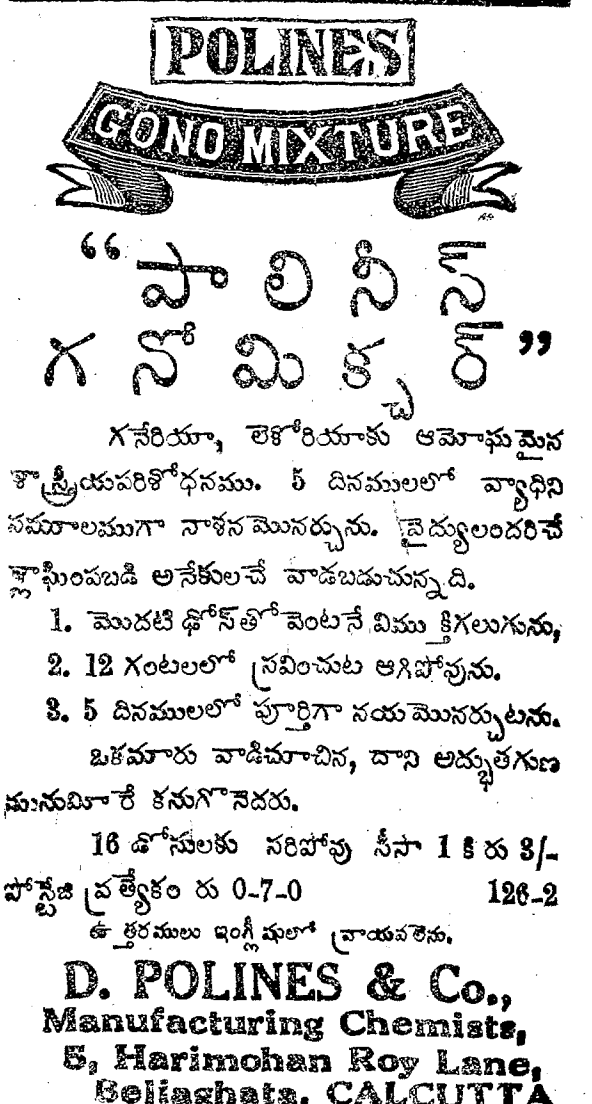 POLINES
GONO MIXTURE
“పాలినీస్
గనోమిక్చర్”
గనేరియా, లెకోరియాకు ఆమోఘమైన
శాస్త్రీయపరిశోధనము. 5 దినములలో వ్యాధిని
సమూలముగా నాశన మొనర్చును. వైద్యులందరిచే
శ్లాఘింపబడి అనేకులచే వాడబడుచున్నది.
1. మొదటి డోస్‌తో వెంటనే విముక్తిగలుగును,
2. 12 గంటలలో స్రవించుట ఆగిపోవును.
3. 5 దినములలో పూర్తిగా నయ మొనర్చుటను.
ఒకమారు వాడిచూచిన, దాని అద్భుతగుణ
మునుమీరే కనుగొనెదరు.
16 డోసులకు సరిపోవు సీసా 1 కి రు 3/-
పోస్టేజి ప్రత్యేకం రు 0-7-0 126-2
ఉత్తరములు ఇంగ్లీషులో వ్రాయవలెను.
D. POLINES & Co.,
Manufacturing Chemists,
5, Harimohan Roy Lane,
Beliaghata, CALCUTTA